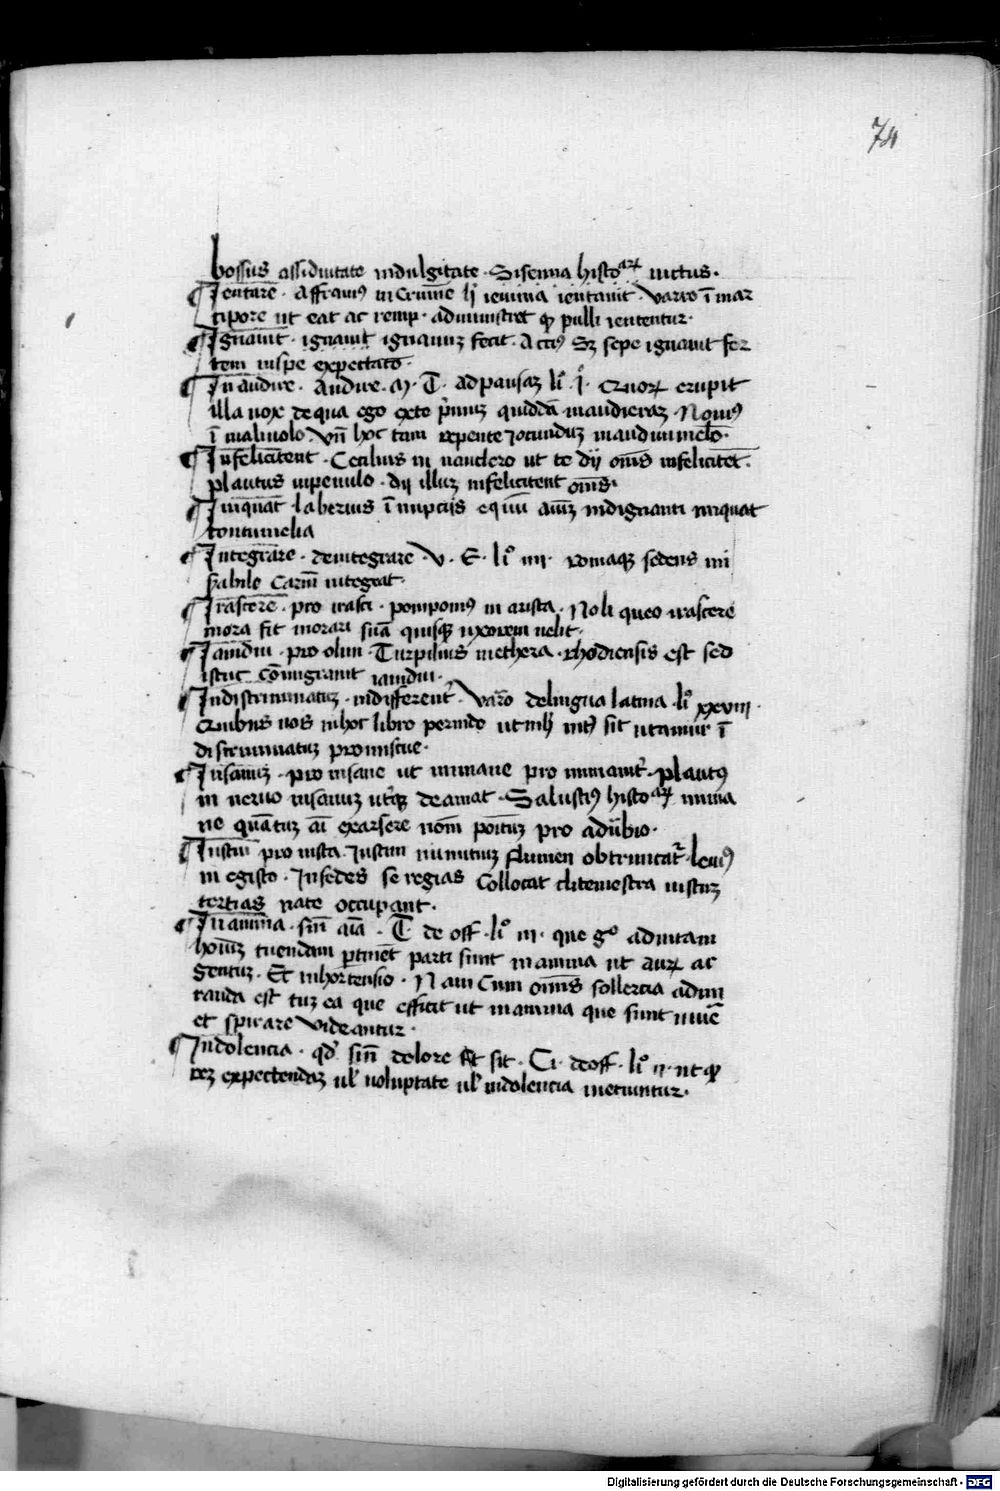 74
bossus assiduitate indulgitate · Sisenna histoaꝝ uictus ·
Ientare · Affraniꝯ in Crimīe lj̄ ieiuna ientauit · Varro ī mar
tipore ut eat ac remp · administret ꝙ pulli iententur ·
Ignauit · ignauit ignauuꝫ fecit · Actiꝯ Sꝫ sepe ignauit for
tem inspe expectato ·
Inaudire · Audire · M · T · ad pansaꝫ lī · j° · Quoꝝ erupit
illa uox de qua ego exte p̄muꝫ quiddā inaudieraꝫ · Nouiꝯ
ī maliuolo · Vn̄ hoc tam repente iocunduꝫ inaudiui melo ·
Infelicitent · Cecilius in nauclero ut te dij om̄s infelicitēt ·
plautus inpenulo · dij illuꝫ infelicitent om̄s ·
Iniquat · laberius ī nupcijs equū aīuꝫ indignanti iniquat
contumelia
Integrare · deintegrare · V · E · li° iiij · ramaqꝫ sedens mi
srabile Carm̄ integrat ·
Irascere · pro irasci · pomponiꝯ in arista · Noli queo irascere
mora fit morari suā quisqꝫ uxorem uelit ·
Iamdiu · pro olim · Turpilius inethera · rhodiensis est sed
istuc cōmigrauit iamdiu ·
Indiscriminatiꝫ · indifferent̄ · Varro delingua latina · li° xxviij ·
Quibus nos inhoc libro perinde ut nihil int̄ sit utamur ī
discriminatiꝫ promiscue ·
Insanuꝫ · pro insane ut inmane pro inmanit̄ · plautꝯ
in neruo insanuꝫ ut̄qꝫ deamat · Salustiꝯ histoaꝝ inma
ne quātuꝫ aī exarsere nom̄ poituꝫ pro adūbio ·
Iustū pro iusta · Iustim nunutiuꝫ flumen obtruncat̄ · leuiꝯ
in egisto · Insedes se regias Collocat clitemestra iustiꝫ
tertias nate occupant ·
Inanima · sin̄ aīa · T · de off · li° iii · que g° ad uitam
hoīum tuendam p̄tinēt parti sunt inanima ut auꝝ ac
gentuꝫ · Et inhortensio · Nam cum om̄s sollercia admi
randa est tuꝫ ea que efficit ut inanima que sunt uiue
et spirare videantur ·
Indolencia · qd̄ sin̄ dolore sit · Ci · de off · li° ij · ut ꝙ
reꝫ expectendaꝫ ul̄ uoluptate ul̄ indolencia metiuntur ·
Digitalisierung gefördert durch die Deutsche Forschungsgemeinschaft - DFG